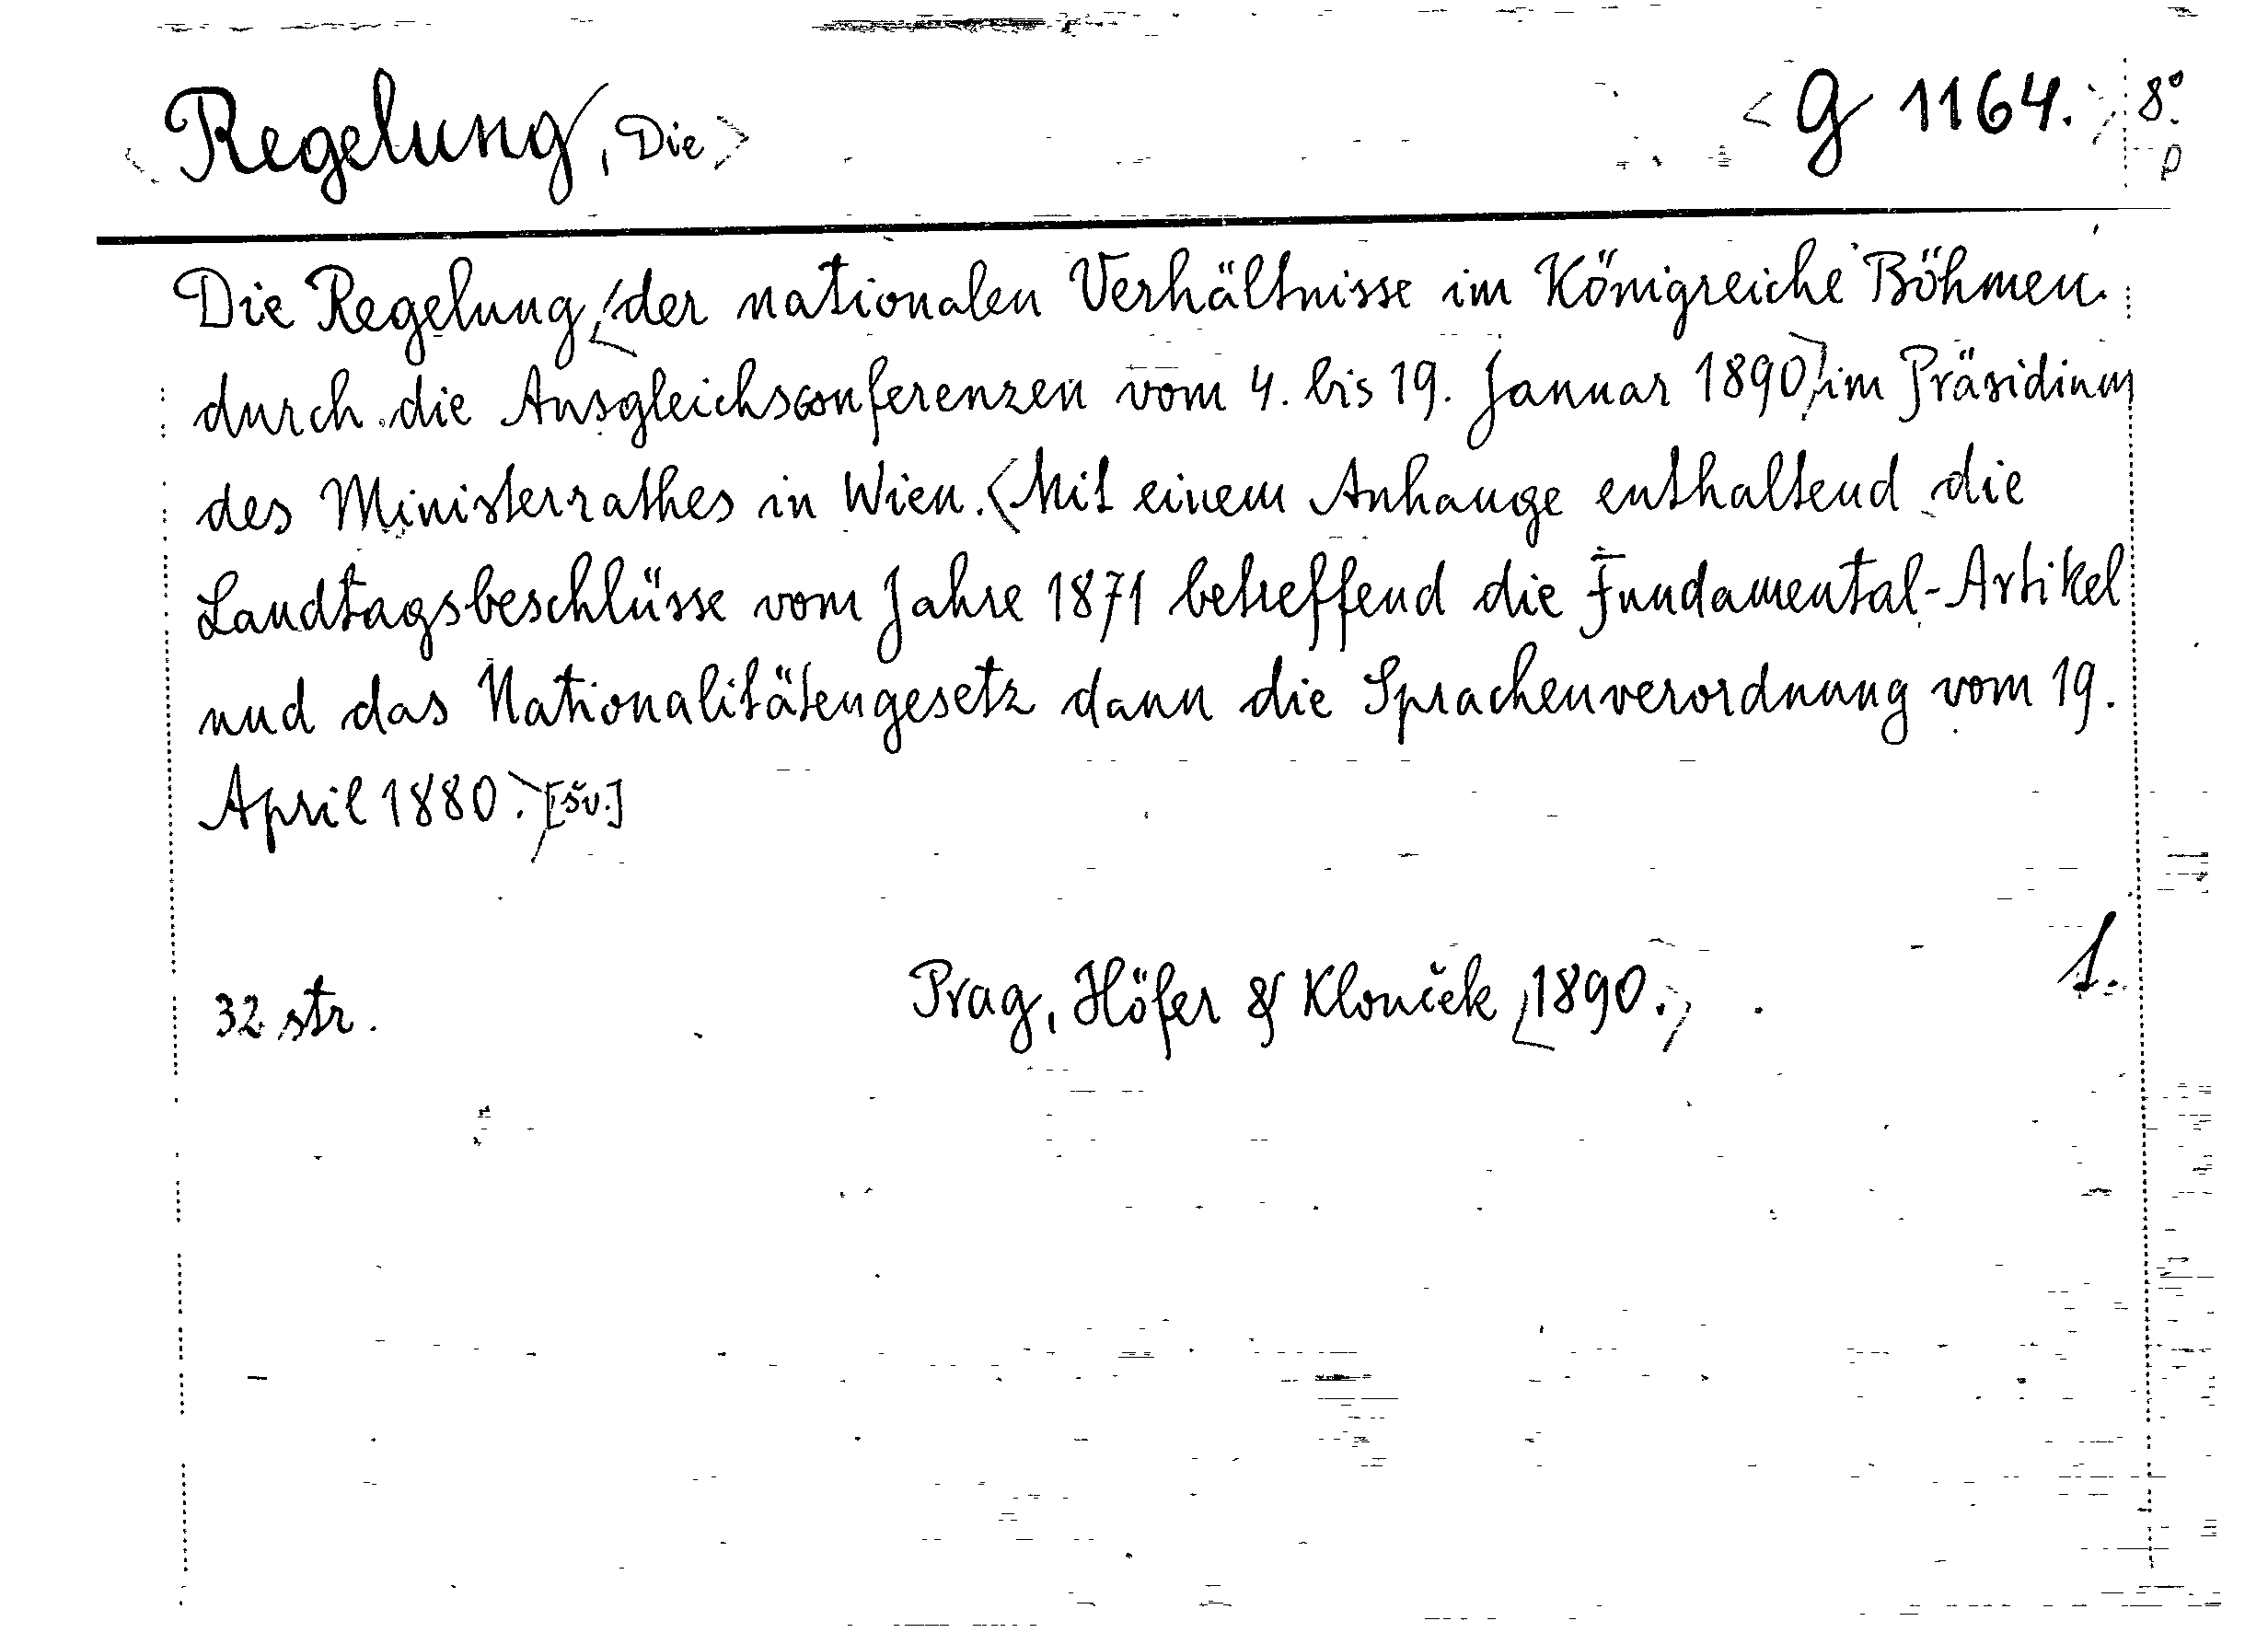 <Regelung, Die> <G 1164.> 8°
p
Die Regelung <der nationalen Verhältnisse im Königreiche Böhmen
durch die Ausgleichsconferenzen vom 4. bis 19. Januar 1890> im Präsidium
des Ministerrathes in Wien. <Mit einem Anhange enthaltend die
Landtagsbeschlüsse vom Jahre 1871 betreffend die Fundamental-Artikel
und das Nationalitätengesetz dann die Sprachenverordnung vom 19.
April 1880.> [šv.]
32 str. Prag, Höfer & Klouček <1890.> 1.